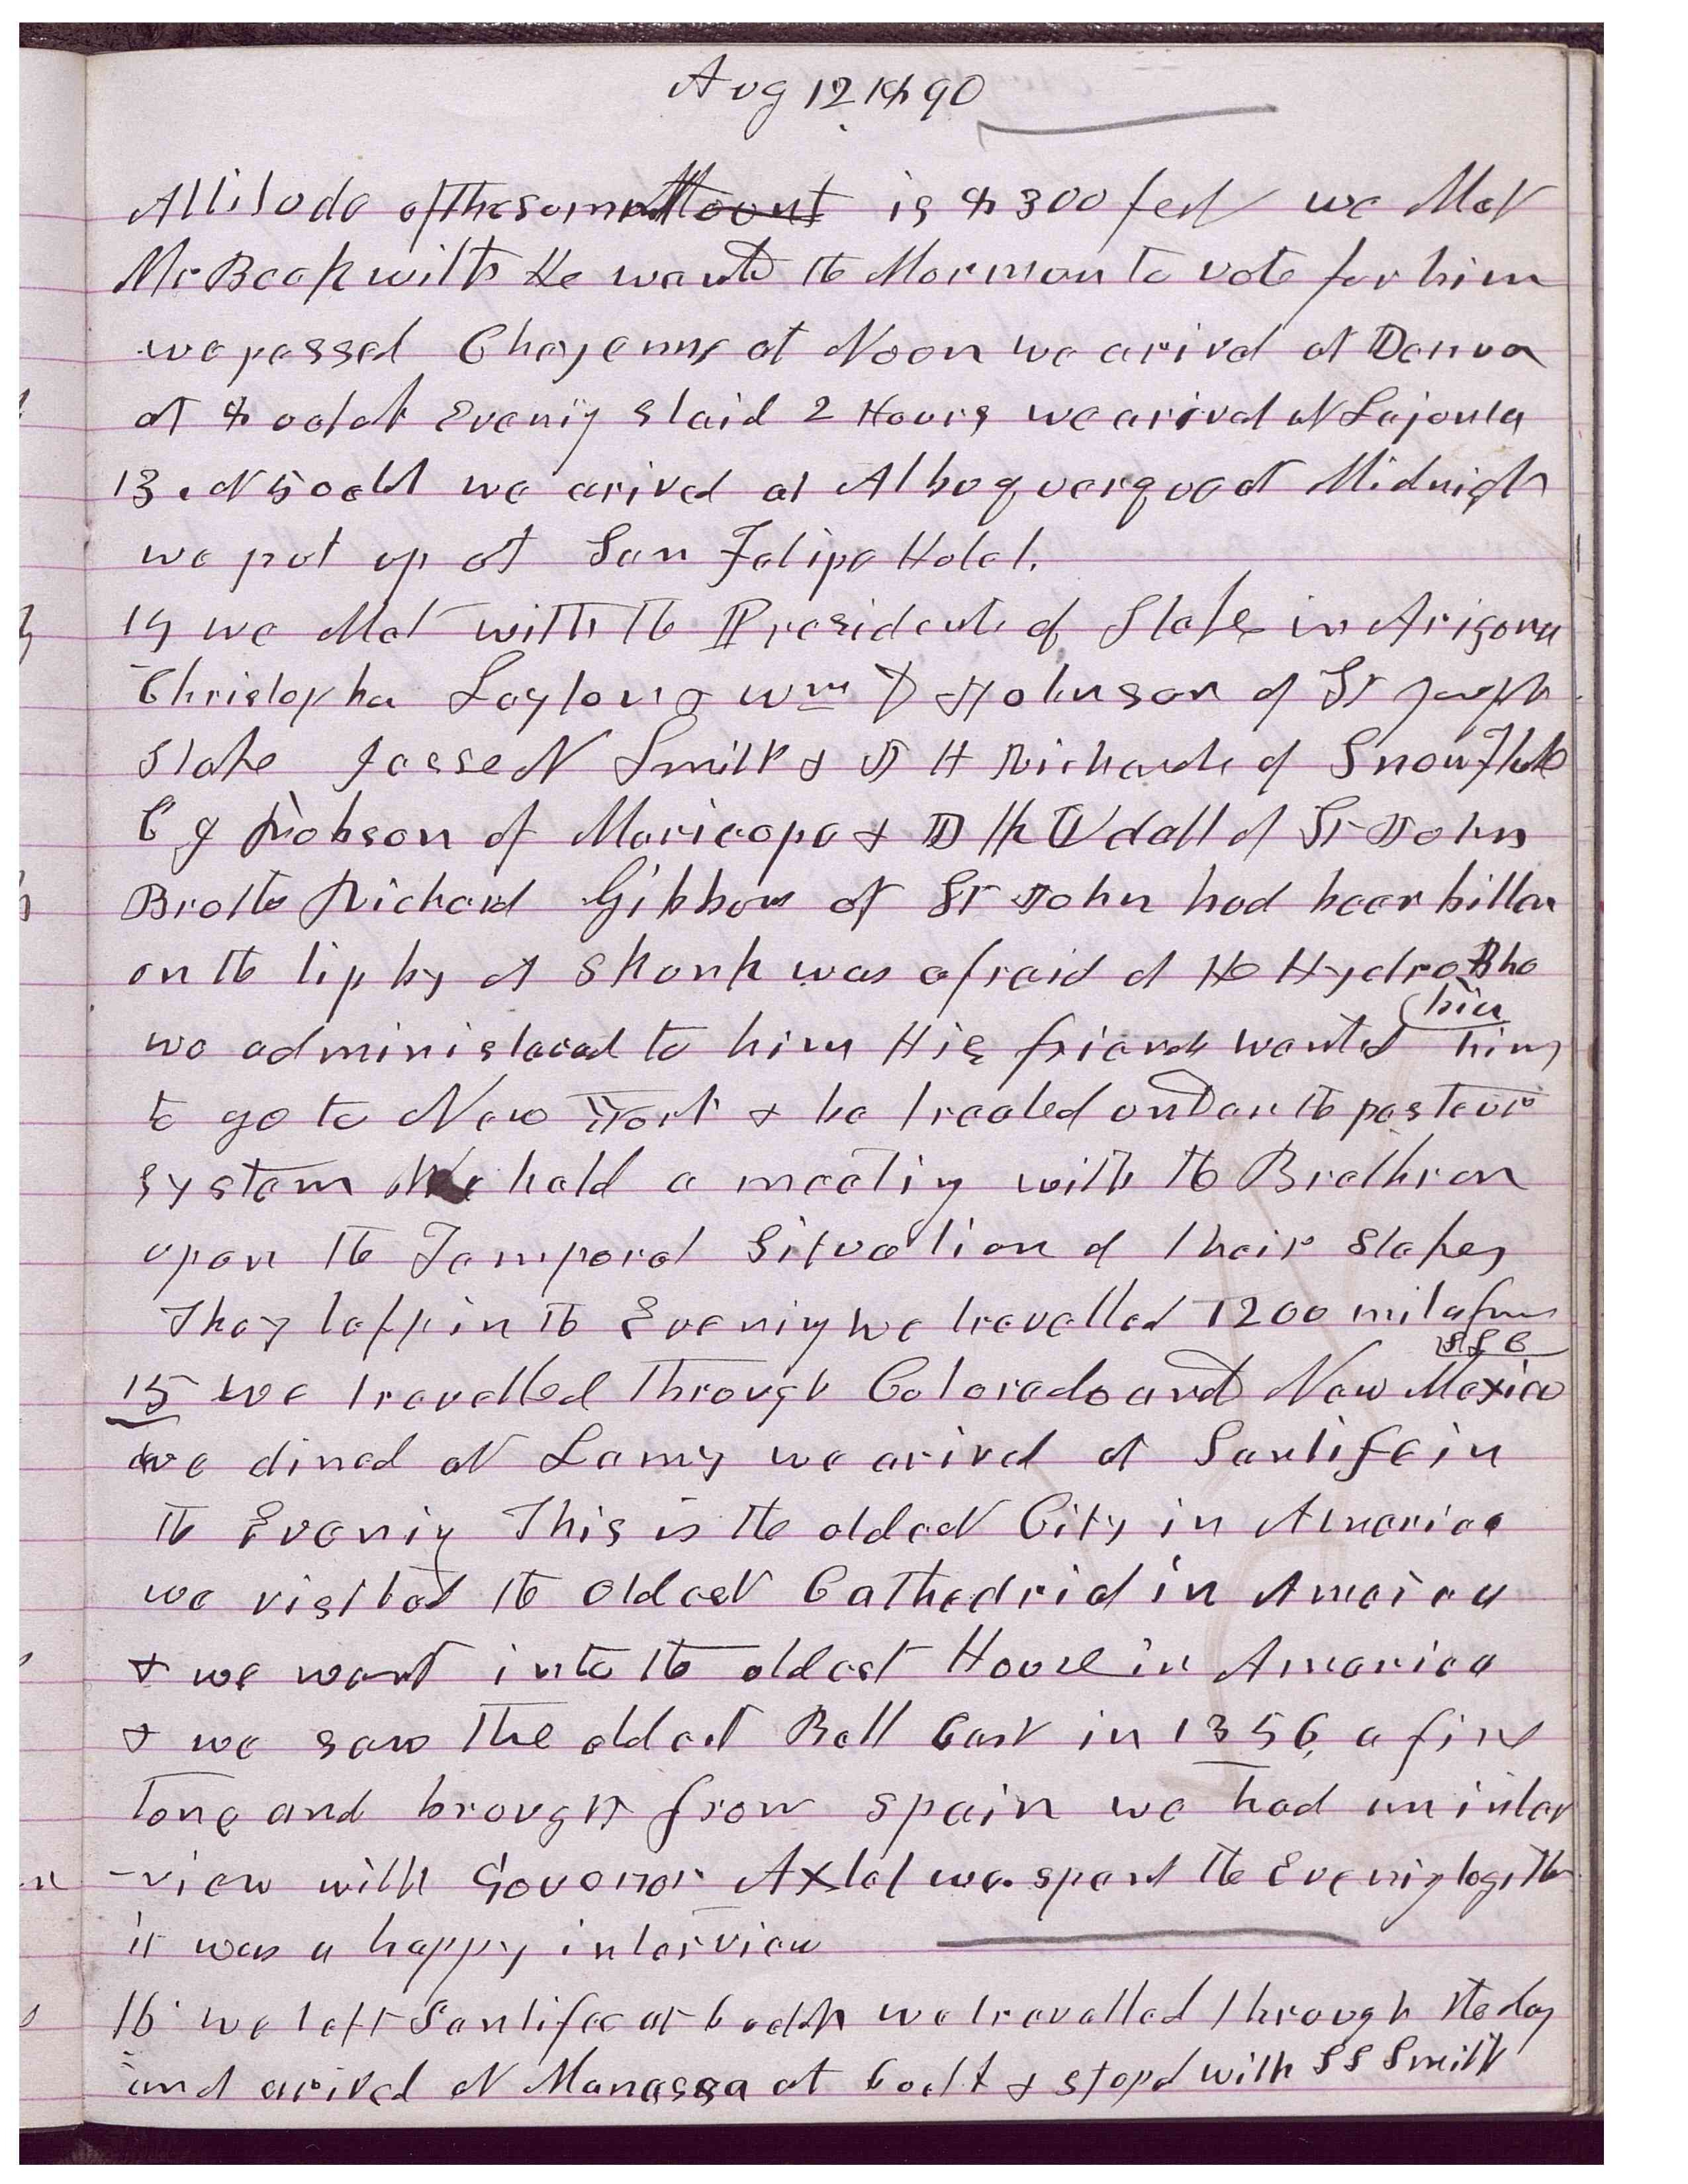 Aug 12 1890
Altitude of the sumit Mount is 8300 feet we Met
Mr Beckwith He wants the Mormon to vote for him
we passed Cheyenne at Noon we arived at Denver
at 8 oclok Evenig Staid 2 Hours we arived at Lajonta
13. At 5 oclk we arived at Albuquerque at Midnight
we put up at San Felipe Hotel.
14 we Met with the Presidents of Stakes in Arizona
Christopher Layton & Wm D Johnson of St Joseph
Stake Jesse N Smith & J H Richards of Snowflake
C I Robson of Maricopa & D K Udall of St Johns
Brother Richard Gibbons of St John had been bitten
on the lip by A Skunk was afraid of the HydroPho
bia
we administered to him His friends wanted him
to go to New York & be treated under the pasteur
system We held a meeting with the Brethren
upon the Temporal Situation of their Stakes
They left in the Evening we travelled 1200 miles from
SLC
15 we travelled through Colorado and New Mexico
we dined at Lamy we arived at Santifee in
the Evenig This is the oldest City in America
we visited the oldest Cathedrid in America
& we went into the oldest House in America
& we saw the oldest Bell Cast in 1356 a fine
tone and brought from Spain we had an inter
-view with Governor Axtel we spent the Evenig togither
it was a happy interview
16 we left Santifee at 6 oclok we travelled through the day
and arived at Manassa at 6 oclk & stopd with S S Smith